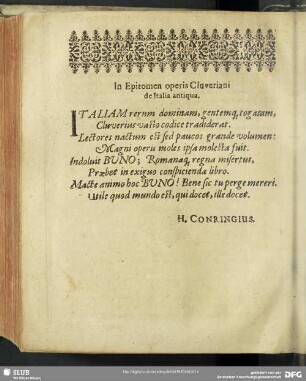 In Epitomen operis Cluveriani
de Italia antiqua.
ITALIAM rerum dominam, gentemq; togatam,
Cluverius vasto codice tradiderat.
Lectores nactum est sed paucos grande volumen:
Magni operis moles ipsa molesta fuit.
Indoluit BUNO; Romanaq; regna misertus,
Præbet in exiguo conspicienda libro.
Macte animo hoc BUNO! Bene sic tu perge mereri.
Utile quod mundo est, qui docet, ille docet.
H. CONRINGIUS.